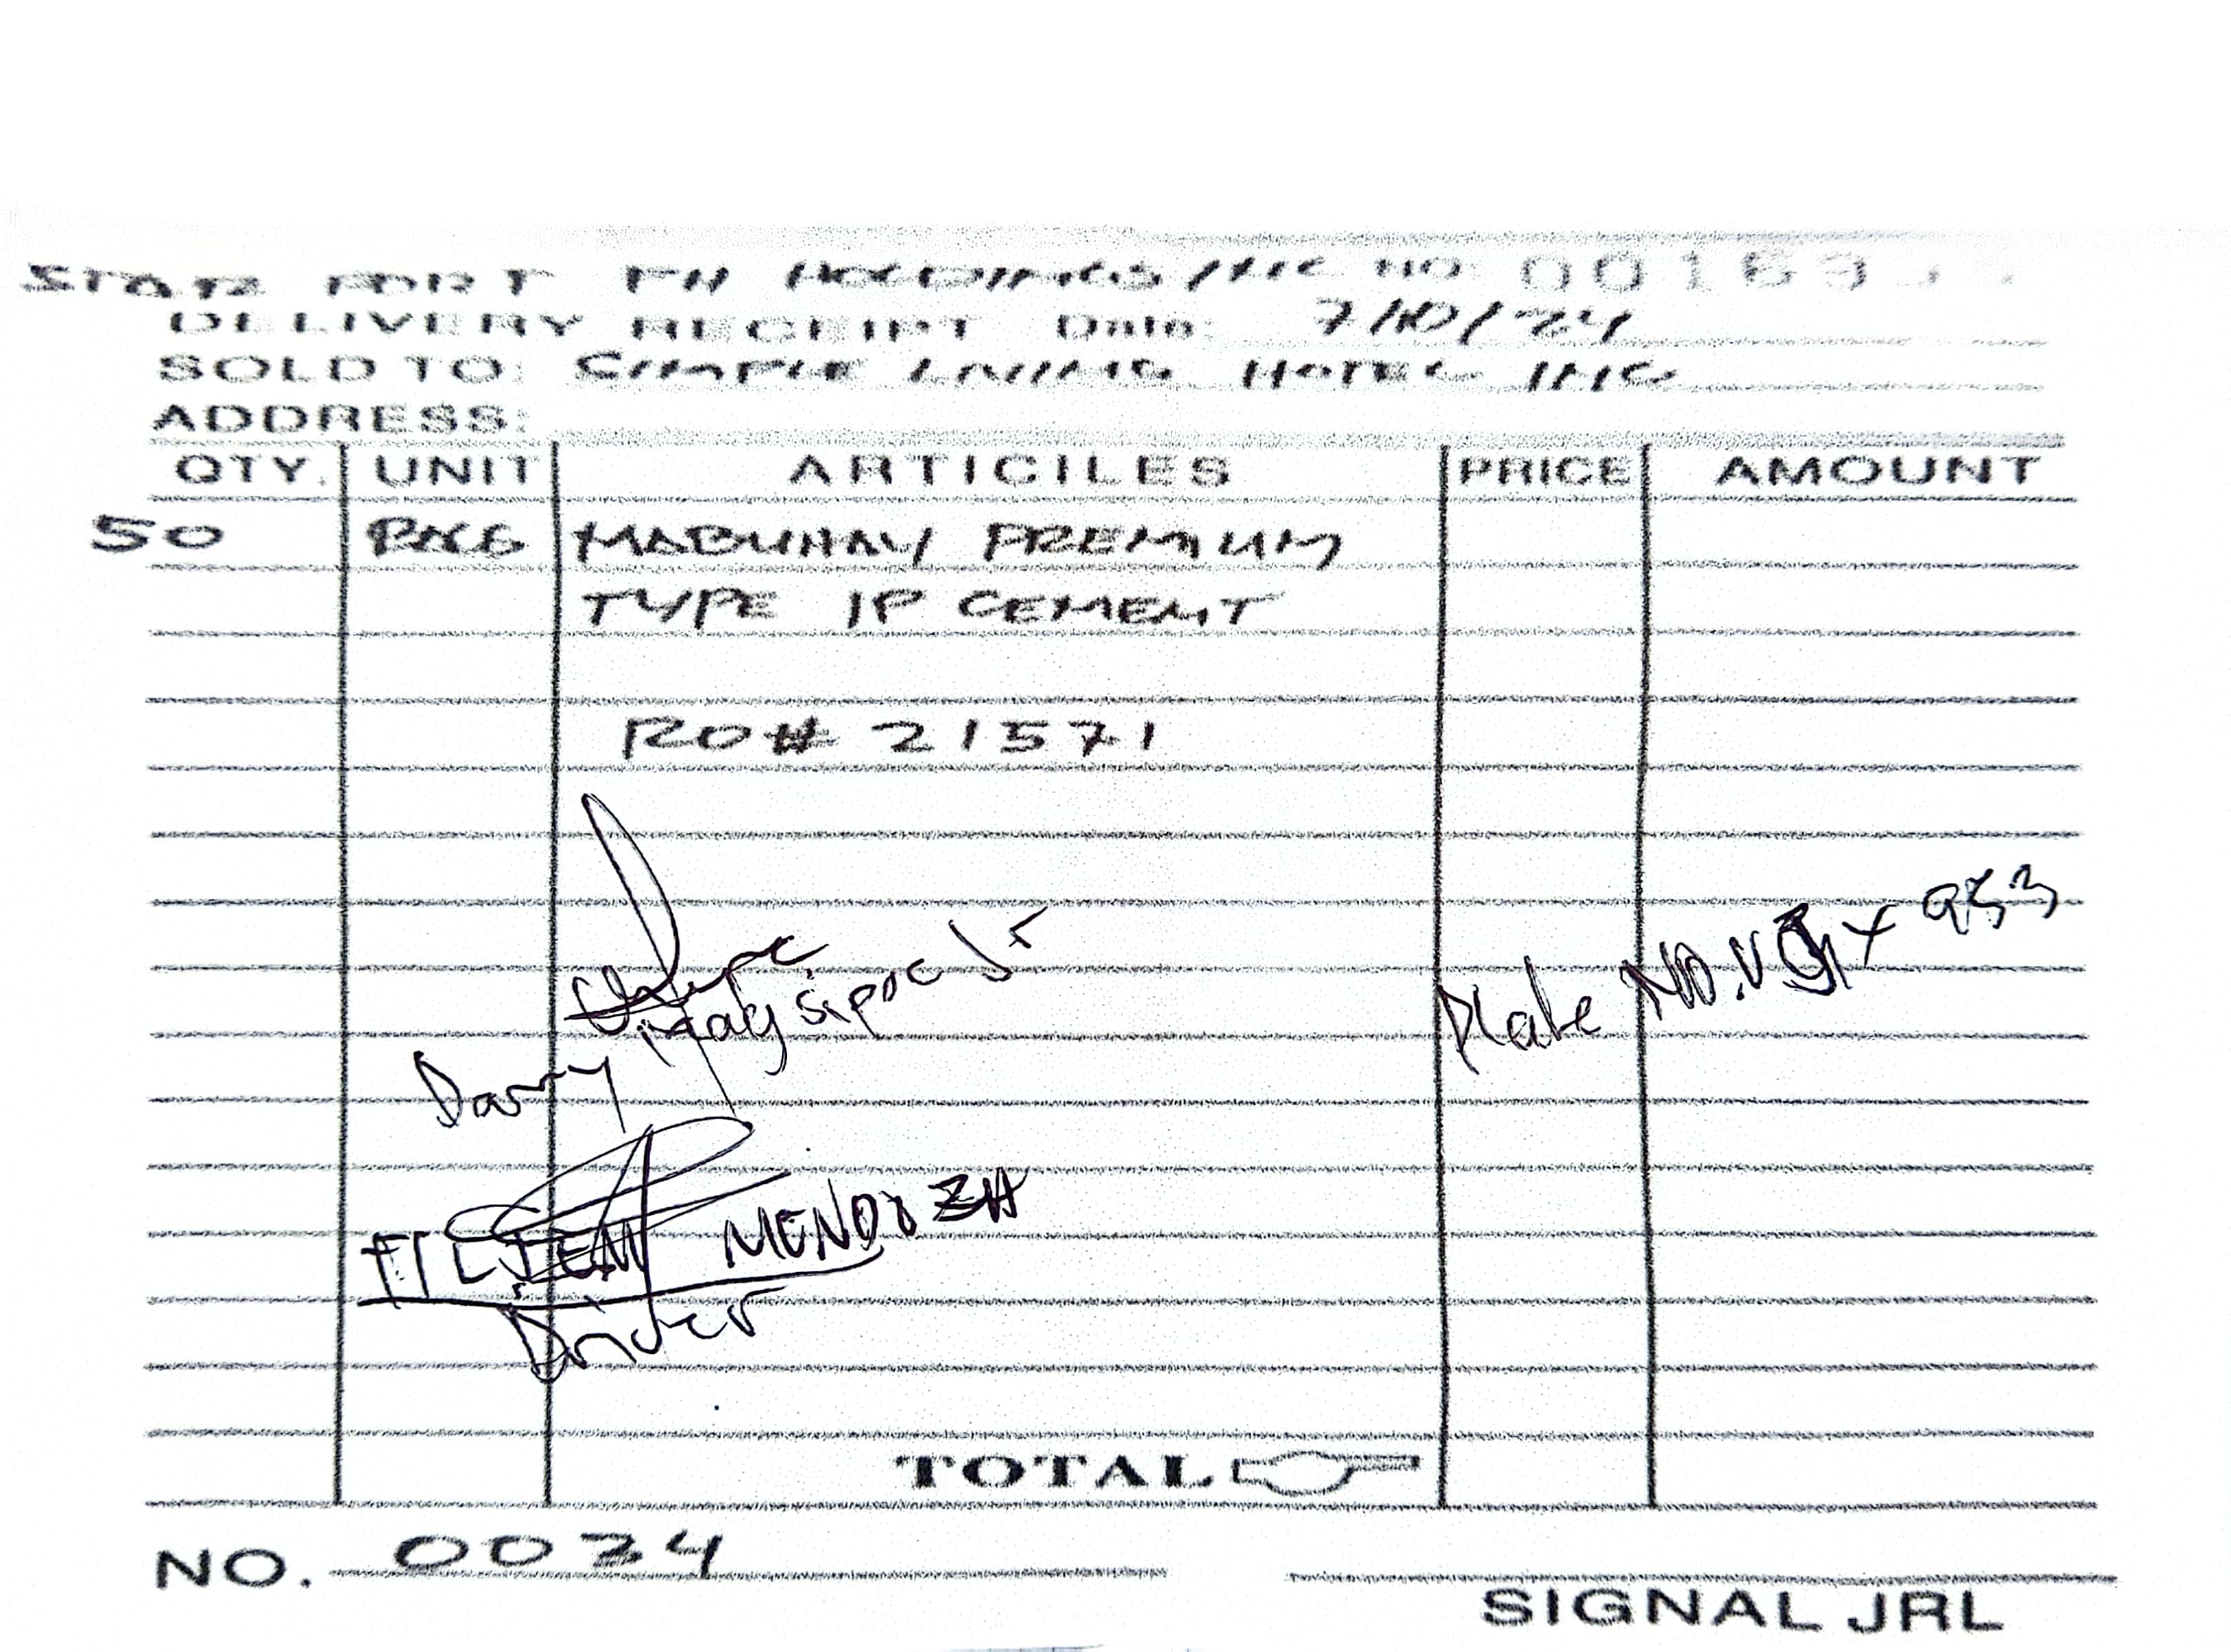 STAR PORT PH HOLDINGS INC NO 00163
DELIVERY RECEIPT Date: 7/10/24
SOLD TO: SIMPLE LIVING HOTEL INC
ADDRESS:
QTY. UNIT ARTICILES PRICE AMOUNT
50 BAG MABUHAY PREMIUM
TYPE 1P CEMENT
RO# 21571
Darry Magsipoc Jr
Plate NO.
FILJEM MENDOZA
Driver
TOTAL
NO. 0034
SIGNAL JRL